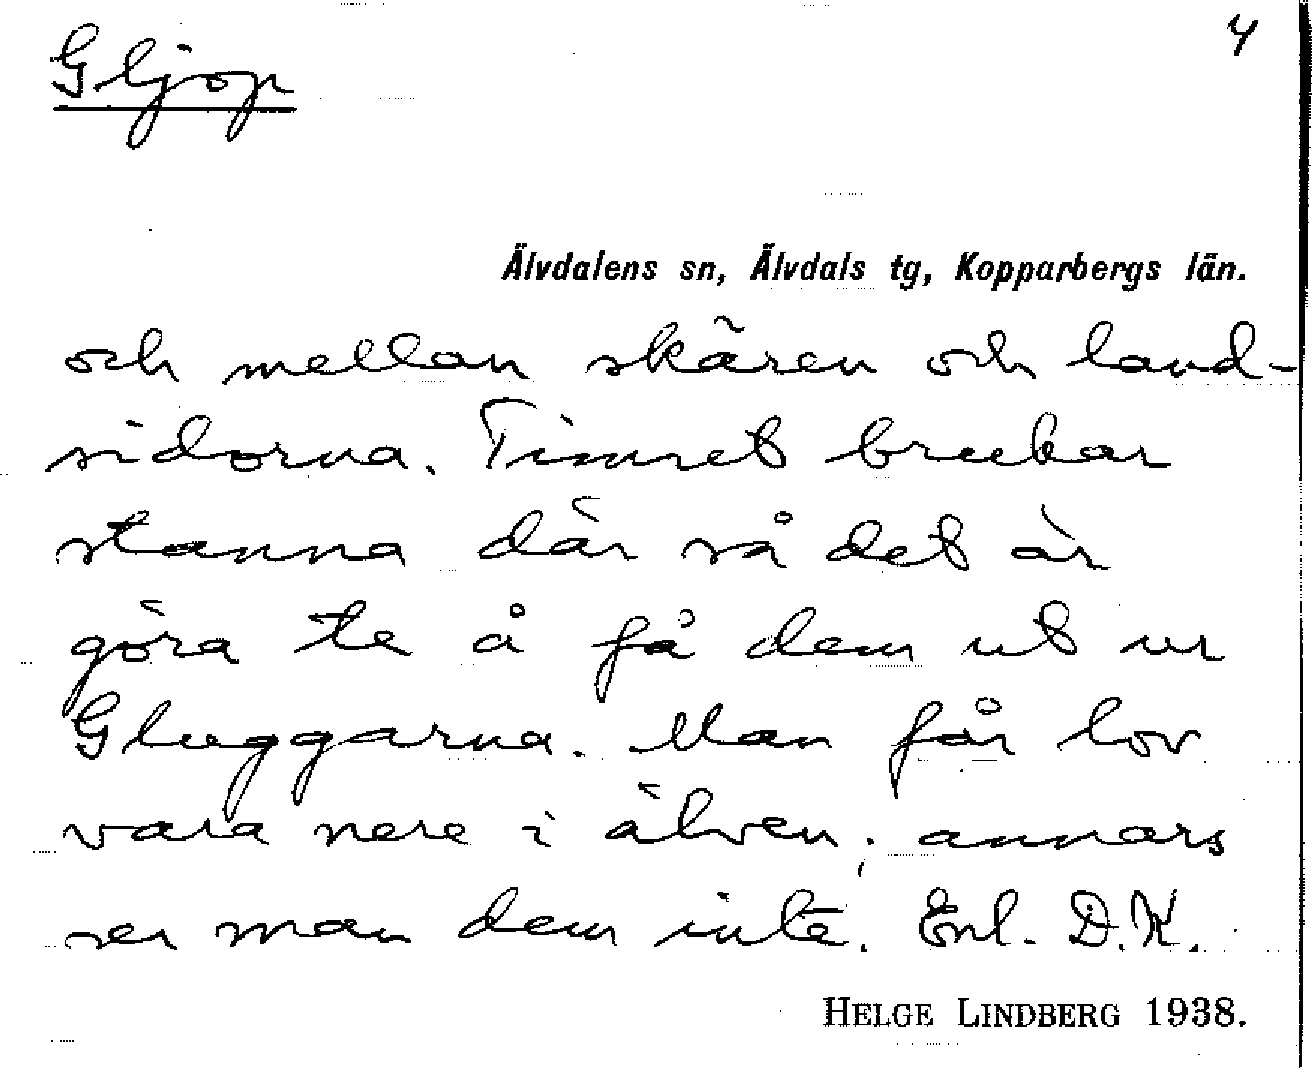 4
Gljop
Älvdalens sn, Älvdals tg, Kopparbergs län.
och mellan skären och land-
sidorna. Timret brukar
stanna där så det är
göra te å få dem ut ur
Gluggarna. Man får lov
vara nere i älven; annars
ser man dem inte. Enl. D.K.
HELGE LINDBERG 1938.